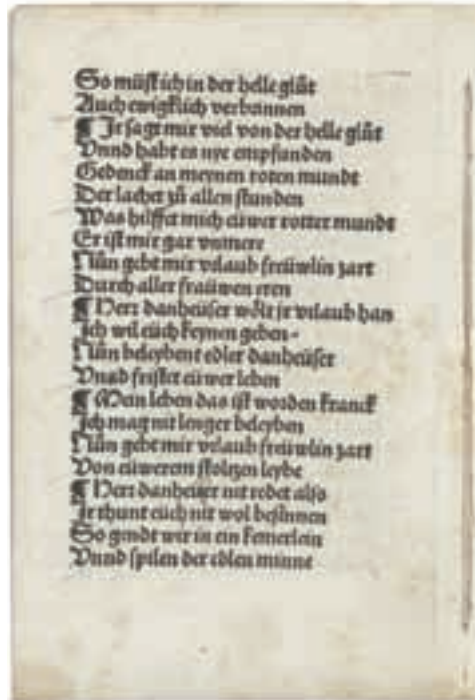 So müst ich in der helle glüt
Auch ewigklich verbrinnen
¶ Ir sagt mir viel von der helle glüt
Vnnd habt es nye empfunden
Gedenck an meynen roten mundt
Der lachet zů allen stunden
Was hilffet mich eüwer rotter mundt
Er ist mir gar vnmere
Nun gebt mir vrlaub freüwlin zart
Durch aller frauwen eren
¶ Herr danheüser wölt jr vrlaub han
Ich wil eüch keynen geben
Nun beleybent edler danheüser
Vnnd fristet eüwer leben
¶ Mein leben das ist worden kranck
Ich mag nit lenger beleyben
Nun gebt mir vrlaub freüwlin zart
Von eüwerem stoltzen leybe
¶ Herr danheüser nit redet also
Ir thunt eüch nit wol besinnen
So gendt wir in ein kemerlein
Vnnd spilen der edlen minne